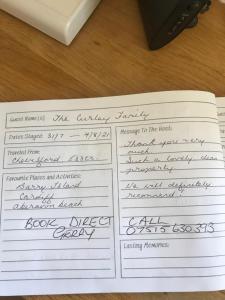 Guest Name(s): The Curley Family
Dates Stayed: 31/7 — 7/8/21
Travelled From:
Chelmsford, Essex.
Favourite Places and Activities:
Barry Island
Cardiff
Aberavon beach
BOOK DIRECT
GERRY
Message To The Host:
Thank you very
much.
Such a lovely clean
property
We will definitely
recommend!
CALL
07515 630393
Lasting Memories: